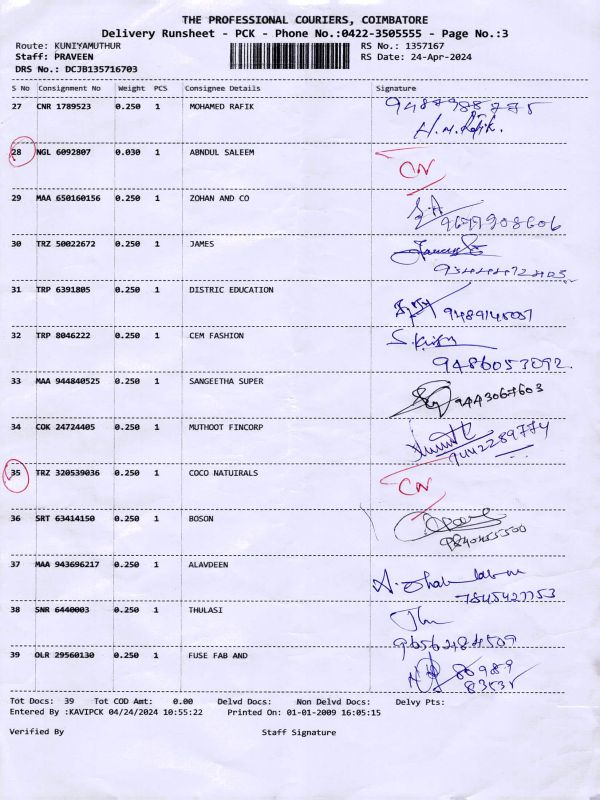 THE PROFESSIONAL COURIERS, COIMBATORE
Delivery Runsheet - PCK - Phone No.:0422-3505555 - Page No.:3
Route: KUNIYAMUTHUR RS No.: 1357167
Staff: PRAVEEN RS Date: 24-Apr-2024
DRS No.: DCJB135716703
S No Consignment No Weight PCS Consignee Details Signature
27 CNR 1789523 0.250 1 MOHAMED RAFIK
H.M.Rafik.
28 NGL 6092807 0.030 1 ABNDUL SALEEM CN
29 MAA 650160156 0.250 1 ZOHAN AND CO
9677908606
30 TRZ 50022672 0.250 1 JAMES
31 TRP 6391805 0.250 1 DISTRIC EDUCATION
32 TRP 8046222 0.250 1 CEM FASHION
9486053092.
33 MAA 944840525 0.250 1 SANGEETHA SUPER 9443067603
34 COK 24724405 0.250 1 MUTHOOT FINCORP
9442289774
35 TRZ 320539036 0.250 1 COCO NATUIRALS CN
36 SRT 63414150 0.250 1 BOSON
37 MAA 943696217 0.250 1 ALAVDEEN
7845427753
38 SNR 6440003 0.250 1 THULASI
9656284509
39 OLR 29560130 0.250 1 FUSE FAB AND 86989
Tot Docs: 39 Tot COD Amt: 0.00 Delvd Docs: Non Delvd Docs: Delvy Pts:
Entered By :KAVIPCK 04/24/2024 10:55:22 Printed On: 01-01-2009 16:05:15
Verified By Staff Signature